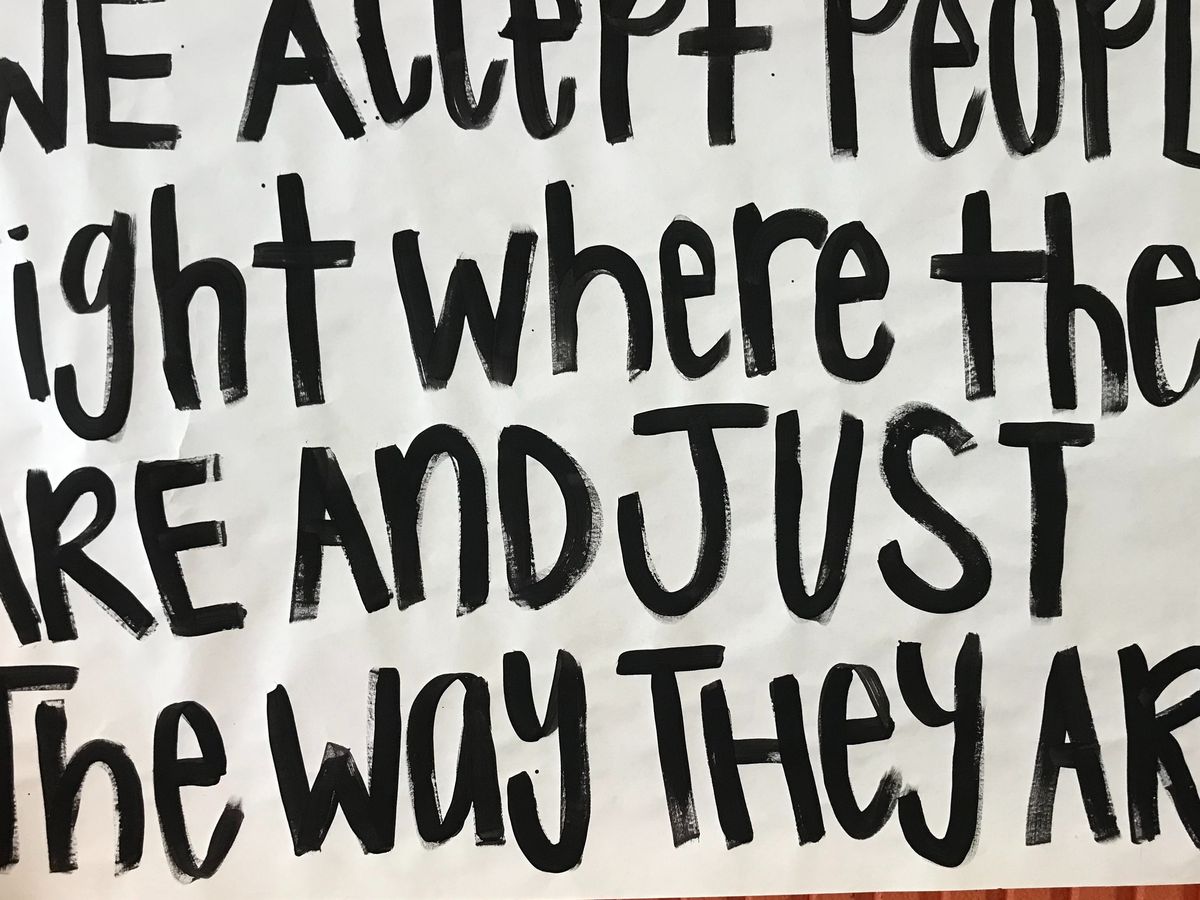 WE ACCEPT PEOPL
ight where the
ARE AND JUST
The WAY THEY AR